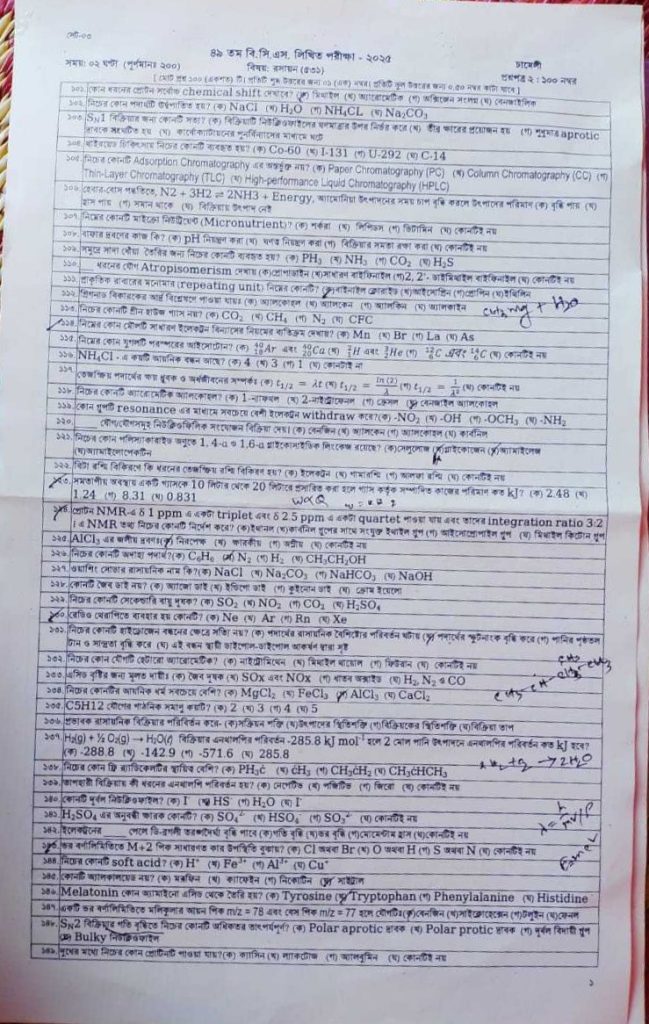 সেট-০৩
৪৯ তম বি.সি.এস. লিখিত পরীক্ষা - ২০২৫
সময়: ০২ ঘন্টা (পূর্ণমানঃ ২০০) বিষয়: রসায়ন (৫৩১) চামেলী
[মোট প্রশ্ন ১০০ (একশত) টি। প্রতিটি শুদ্ধ উত্তরের জন্য ০১ (এক) নম্বর। প্রতিটি ভুল উত্তরের জন্য ০.৫০ নম্বর কাটা যাবে] প্রশ্নপত্র ২ : ১০০ নম্বর
১০১. কোন ধরনের প্রোটন সর্বোচ্চ chemical shift দেখাবে? (ক) মিথাইল (খ) অ্যারোমেটিক (গ) অক্সিজেন সংলগ্ন (ঘ) বেনজাইলিক
১০২. নিচের কোন পদার্থটি ঊর্ধ্বপাতিত হয়? (ক) NaCl (খ) H₂O (গ) NH₄CL (ঘ) Na₂CO₃
১০৩. SN1 বিক্রিয়ার জন্য কোনটি সত্য? (ক) বিক্রিয়াটি নিউক্লিওফাইলের ঘনমাত্রার উপর নির্ভর করে (খ) তীব্র ক্ষারের প্রয়োজন হয় (গ) শুধুমাত্র aprotic
দ্রাবকে সংঘটিত হয় (ঘ) কার্বোক্যাটায়নের পুনর্বিন্যাসের মাধ্যমে ঘটে
১০৪. থাইরয়েড চিকিৎসায় নিচের কোনটি ব্যবহৃত হয়? (ক) Co-60 (খ) I-131 (গ) U-292 (ঘ) C-14
১০৫. নিচের কোনটি Adsorption Chromatography এর অন্তর্ভুক্ত নয়? (ক) Paper Chromatography (PC) (খ) Column Chromatography (CC) (গ)
Thin-Layer Chromatography (TLC) (ঘ) High-performance Liquid Chromatography (HPLC)
১০৬. হেবার-বোস পদ্ধতিতে, N2 + 3H2 ⇌ 2NH3 + Energy, অ্যামোনিয়া উৎপাদনের সময় চাপ বৃদ্ধি করলে উৎপাদের পরিমাণ (ক) বৃদ্ধি পায় (খ)
হ্রাস পায় (গ) সমান থাকে (ঘ) বিক্রিয়ায় উৎপাদ নেই
১০৭. নিম্নের কোনটি মাইক্রো নিউট্রিয়েন্ট (Micronutrient)? (ক) শর্করা (খ) লিপিডস (গ) ভিটামিন (ঘ) কোনটিই নয়
১০৮. বাফার দ্রবণের কাজ কি? (ক) pH নিয়ন্ত্রণ করা (খ) ঘনত্ব নিয়ন্ত্রণ করা (গ) বিক্রিয়ার সমতা রক্ষা করা (ঘ) কোনটিই নয়
১০৯. সমুদ্রে সাদা ধোঁয়া তৈরির জন্য নিচের কোনটি ব্যবহৃত হয়? (ক) PH₃ (খ) NH₃ (গ) CO₂ (ঘ) H₂S
১১০. ____ ধরনের যৌগ Atropisomerism দেখায় (ক)প্রোপাডাইন (খ)সাধারণ বাইফিনাইল (গ)2, 2'- ডাইমিথাইল বাইফিনাইল (ঘ) কোনটিই নয়
১১১. প্রাকৃতিক রাবারের মনোমার (repeating unit) নিম্নের কোনটি? (ক)ভাইনাইল ক্লোরাইড (খ)আইসোপ্রিন (গ)প্রোপিন (ঘ)ইথিলিন
১১২. গ্রিগনার্ড বিকারকের আর্দ্র বিশ্লেষণে পাওয়া যায়ঃ (ক) অ্যালকোহল (খ) অ্যালকেন (গ) অ্যালকিন (ঘ) অ্যালকাইন
CH₃Mg + H₂O
১১৩. নিচের কোনটি গ্রীন হাউজ গ্যাস নয়? (ক) CO₂ (খ) CH₄ (গ) N₂ (ঘ) CFC
১১৪. নিম্নের কোন মৌলটি সাধারণ ইলেকট্রন বিন্যাসের নিয়মের ব্যতিক্রম দেখায়? (ক) Mn (খ) Br (গ) La (ঘ) As
১১৫. নিম্নের কোন যুগলটি পরস্পরের আইসোটোন? (ক) ⁴⁰₁₈Ar এবং ⁴⁰₂₀Ca (খ) ³₁H এবং ³₂He (গ) ¹²₆C এবং ¹⁴₆C (ঘ) কোনটিই নয়
১১৬. NH4Cl - এ কয়টি আয়নিক বন্ধন আছে? (ক) 4 (খ) 3 (গ) 1 (ঘ) কোনটাই না
১১৭. তেজস্ক্রিয় পদার্থের ক্ষয় ধ্রুবক ও অর্ধজীবনের সম্পর্কঃ (ক) t₁/₂ = λt (খ) t₁/₂ = ln(2)/λ (গ) t₁/₂ = 1/λ² (ঘ) কোনটিই নয়
১১৮. নিচের কোনটি অ্যারোমেটিক অ্যালকোহল? (ক) 1-নাফথল (খ) 2-নাইট্রোফেনল (গ) ক্রেসল (ঘ) বেনজাইল অ্যালকোহল
১১৯. কোন গ্রুপটি resonance এর মাধ্যমে সবচেয়ে বেশী ইলেকট্রন withdraw করে? (ক) -NO₂ (খ) -OH (গ) -OCH₃ (ঘ) -NH₂
১২০. ____ যৌগ/যৌগসমূহ নিউক্লিওফিলিক সংযোজন বিক্রিয়া দেয়। (ক) বেনজিন (খ) অ্যালকেন (গ) অ্যালকোহল (ঘ) কার্বনিল
১২১. নিচের কোন পলিস্যাকারাইড অণুতে 1, 4-α ও 1,6-α গ্লাইকোসাইডিক লিংকেজ রয়েছে? (ক)সেলুলোজ (খ)গ্লাইকোজেন (গ)অ্যামাইলেজ
(ঘ)অ্যামাইলোপেকটিন
১২২. বিটা রশ্মি বিকিরণে কি ধরনের তেজস্ক্রিয় রশ্মি বিকিরণ হয়? (ক) ইলেকট্রন (খ) গামারশ্মি (গ) আলফা রশ্মি (ঘ) কোনটিই নয়
১২৩. সমতাপীয় অবস্থায় একটি গ্যাসকে 10 লিটার থেকে 20 লিটারে প্রসারিত করা হলে গ্যাস কর্তৃক সম্পাদিত কাজের পরিমাণ কত kJ? (ক) 2.48 (খ)
1.24 (গ) 8.31 (ঘ) 0.831
১২৪. প্রোটন NMR-এ δ 1 ppm এ একটা triplet এবং δ 2.5 ppm এ একটা quartet পাওয়া যায় এবং তাদের integration ratio 3:2
। এ NMR তথ্য নিচের কোনটি নির্দেশ করে? (ক)ইথানল (খ)কার্বনিল গ্রুপের সাথে সংযুক্ত ইথাইল গ্রুপ (গ) আইসোপ্রোপাইল গ্রুপ (ঘ) মিথাইল কিটোন গ্রুপ
১২৫. AlCl₃ এর জলীয় দ্রবণঃ (ক) নিরপেক্ষ (খ) ক্ষারকীয় (গ) অম্লীয় (ঘ) কোনটিই নয়
১২৬. নিচের কোনটি অদাহ্য পদার্থ? (ক) C₆H₆ (খ) N₂ (গ) H₂ (ঘ) CH₃CH₂OH
১২৭. ওয়াশিং সোডার রাসায়নিক নাম কি? (ক) NaCl (খ) Na₂CO₃ (গ) NaHCO₃ (ঘ) NaOH
১২৮. কোনটি জৈব ডাই নয়? (ক) অ্যাজো ডাই (খ) ইন্ডিগো ডাই (গ) কুইনোন ডাই (ঘ) ক্রোম ইয়েলো
১২৯. নিচের কোনটি সেকেন্ডারি বায়ু দূষক? (ক) SO₂ (খ) NO₂ (গ) CO₂ (ঘ) H₂SO₄
১৩০. রেডিও থেরাপিতে ব্যবহার হয় কোনটি? (ক) Ne (খ) Ar (গ) Rn (ঘ) Xe
১৩১. নিচের কোনটি হাইড্রোজেন বন্ধনের ক্ষেত্রে সত্যি নয়? (ক) পদার্থের রাসায়নিক বৈশিষ্ট্যের পরিবর্তন ঘটায় (খ) পদার্থের স্ফুটনাংক বৃদ্ধি করে (গ) পানির পৃষ্ঠতল
টান ও সান্দ্রতা বৃদ্ধি করে (ঘ) এই বন্ধন স্থায়ী ডাইপোল-ডাইপোল আকর্ষণ দ্বারা সৃষ্ট
১৩২. নিচের কোন যৌগটি হেটারো অ্যারোমেটিক? (ক) নাইট্রোমিথেন (খ) মিথাইল থায়োল (গ) ফিউরান (ঘ) কোনটিই নয়
১৩৩. এসিড বৃষ্টির জন্য মূলত দায়ীঃ (ক) জৈব দূষক (খ) SOx এবং NOx (গ) ধাতব অক্সাইড (ঘ) H₂, N₂ ও CO
১৩৪. নিচের কোনটির আয়নিক ধর্ম সবচেয়ে বেশি? (ক) MgCl₂ (খ) FeCl₃ (গ) AlCl₃ (ঘ) CaCl₂
১৩৫. C5H12 যৌগের গাঠনিক সমাণু কয়টি? (ক) 2 (খ) 3 (গ) 4 (ঘ) 5
১৩৬. প্রভাবক রাসায়নিক বিক্রিয়ার পরিবর্তন করে- (ক)সক্রিয়ণ শক্তি (খ)উৎপাদের স্থিতিশক্তি (গ)বিক্রিয়কের স্থিতিশক্তি (ঘ)বিক্রিয়া তাপ
১৩৭. H₂(g) + ½ O₂(g) → H₂O(l) বিক্রিয়ার এনথালপির পরিবর্তন -285.8 kJ mol⁻¹ হলে 2 মোল পানি উৎপাদনে এনথালপির পরিবর্তন কত kJ হবে?
(ক) -288.8 (খ) -142.9 (গ) -571.6 (ঘ) 285.8
2H₂+O₂ → 2H₂O
১৩৮. নিচের কোন ফ্রি র‍্যাডিকেলটির স্থায়িত্ব বেশি? (ক) PH₃Ċ (খ) ĊH₃ (গ) CH₃ĊH₂ (ঘ) CH₃ĊHCH₃
১৩৯. তাপহারী বিক্রিয়ায় কী ধরনের এনথালপি পরিবর্তন হয়? (ক) নেগেটিভ (খ) পজিটিভ (গ) জিরো (ঘ) কোনটিই নয়
১৪০. কোনটি দুর্বল নিউক্লিওফাইল? (ক) I⁻ (খ) HS⁻ (গ) H₂O (ঘ) I⁻
১৪১. H₂SO₄ এর অনুবন্ধী ক্ষারক কোনটি? (ক) SO₄²⁻ (খ) HSO₄⁻ (গ) SO₃²⁻ (ঘ) কোনটিই নয়
১৪২. ইলেকট্রনের ____ পেলে ডি-ব্রগলী তরঙ্গদৈর্ঘ্য বৃদ্ধি পাবে (ক)গতি বৃদ্ধি (খ)ভর বৃদ্ধি (গ)মোমেন্টাম হ্রাস (ঘ)কোনটিই নয়
১৪৩. ভর বর্ণালিমিতিতে M+2 পিক সাধারণত কার উপস্থিতি বুঝায়? (ক) Cl অথবা Br (খ) O অথবা H (গ) S অথবা N (ঘ) কোনটিই নয়
১৪৪. নিচের কোনটি soft acid? (ক) H⁺ (খ) Fe³⁺ (গ) Al³⁺ (ঘ) Cu⁺
১৪৫. কোনটি অ্যালকালয়েড নয়? (ক) মরফিন (খ) ক্যাফেইন (গ) নিকোটিন (ঘ) সাইট্রাল
১৪৬. Melatonin কোন অ্যামাইনো এসিড থেকে তৈরি হয়? (ক) Tyrosine (খ) Tryptophan (গ) Phenylalanine (ঘ) Histidine
১৪৭. একটি ভর বর্ণালিমিতিতে মলিকুলার আয়ন পিক m/z = 78 এবং বেস পিক m/z = 77 হলে যৌগটিঃ (ক)বেনজিন (খ)সাইক্লোহেক্সেন (গ)টলুইন (ঘ)ফেনল
১৪৮. SN2 বিক্রিয়ার গতি বৃদ্ধিতে নিচের কোনটি অধিকতর তাৎপর্যপূর্ণ? (ক) Polar aprotic দ্রাবক (খ) Polar protic দ্রাবক (গ) দুর্বল বিদায়ী গ্রুপ
(ঘ) Bulky নিউক্লিওফাইল
১৪৯. দুধের মধ্যে নিচের কোন প্রোটিনটি পাওয়া যায়? (ক) ক্যাসিন (খ) ল্যাকটোজ (গ) অ্যালবুমিন (ঘ) কোনটিই নয়
১